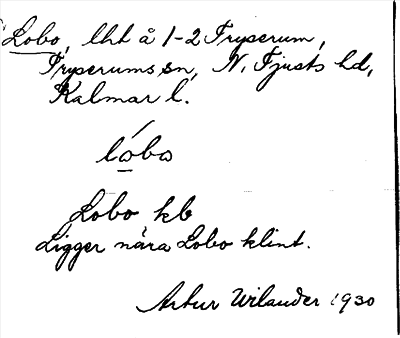 Lobo, lht å 1-2 Tryserum,
Tryserums sn, N. Tjusts hd,
Kalmar l.
lóbo
Lobo kb
Ligger nära Lobo klint.
Artur Wilander 1930